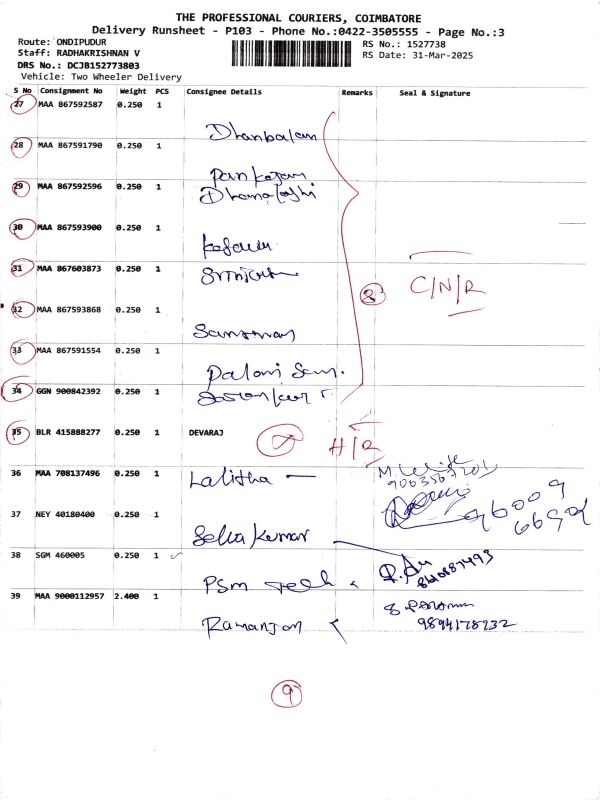 THE PROFESSIONAL COURIERS, COIMBATORE
Delivery Runsheet - P103 - Phone No.:0422-3505555 - Page No.:3
Route: ONDIPUDUR
RS No.: 1527738
Staff: RADHAKRISHNAN V
RS Date: 31-Mar-2025
DRS No.: DCJB152773803
Vehicle: Two Wheeler Delivery
S No Consignment No Weight PCS Consignee Details Remarks Seal & Signature
27 MAA 867592587 0.250 1
Dhanbalan
28 MAA 867591790 0.250 1
29 MAA 867592596 0.250 1
30 MAA 867593900 0.250 1
31 MAA 867603873 0.250 1
C/N/R
8
32 MAA 867593868 0.250 1
33 MAA 867591554 0.250 1
Palani Sam.
34 GGN 900842392 0.250 1
35 BLR 415888277 0.250 1 DEVARAJ
H/R
36 MAA 708137496 0.250 1
Lalitha
37 NEY 40180400 0.250 1
96009
Selva Kumar
38 SGM 460005 0.250 1
PSM Tech
39 MAA 9000112957 2.400 1
9894178232
9